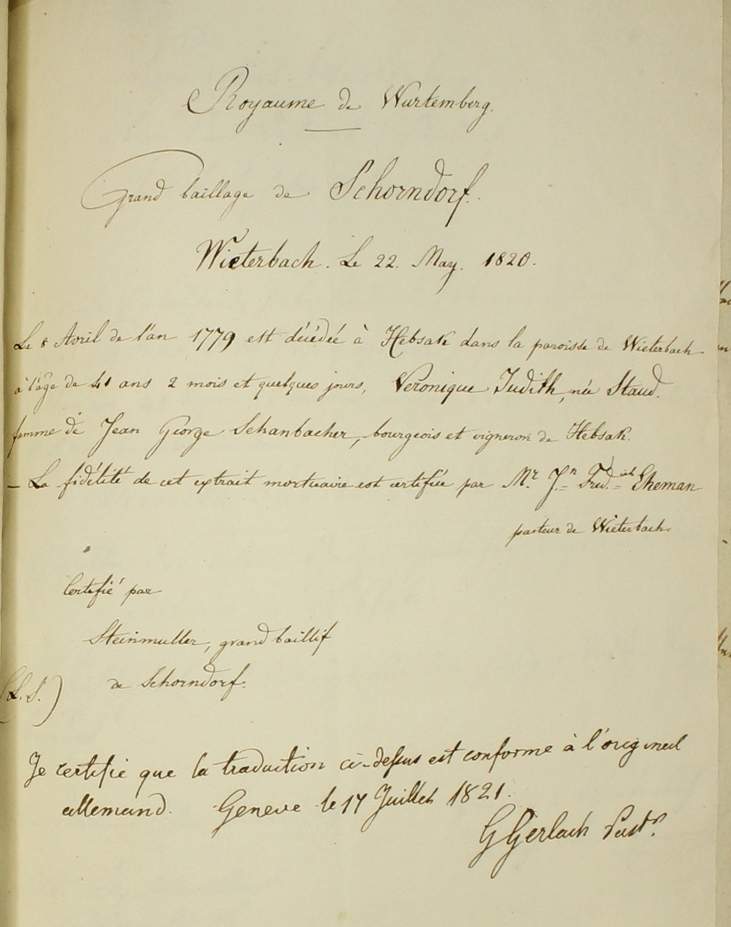 Royaume de Wurtemberg.
Grand baillage de Schorndorf.
Wieterbach. Le 22. May. 1820.
Le 8 Avril de l'an 1779 est décédée à Hebsak dans la paroisse de Wieterbach
à l'âge de 41 ans 2 mois et quelques jours, Veronique Judith, née Staud.
femme de Jean George Schanbacher, bourgeois et vigneron de Hebsak.
— La fidélité de cet extrait mortuaire est certifiée par Mr. Jn. Fred. Eheman
pasteur de Wieterbach.
Certifié par
Steinmuller, grand baillif
de Schorndorf.
(L. S.)
Je certifie que la traduction ci-dessus est conforme à l'original
allemand. Geneve le 17 Juillet 1821.
G Gerlach Pastr.